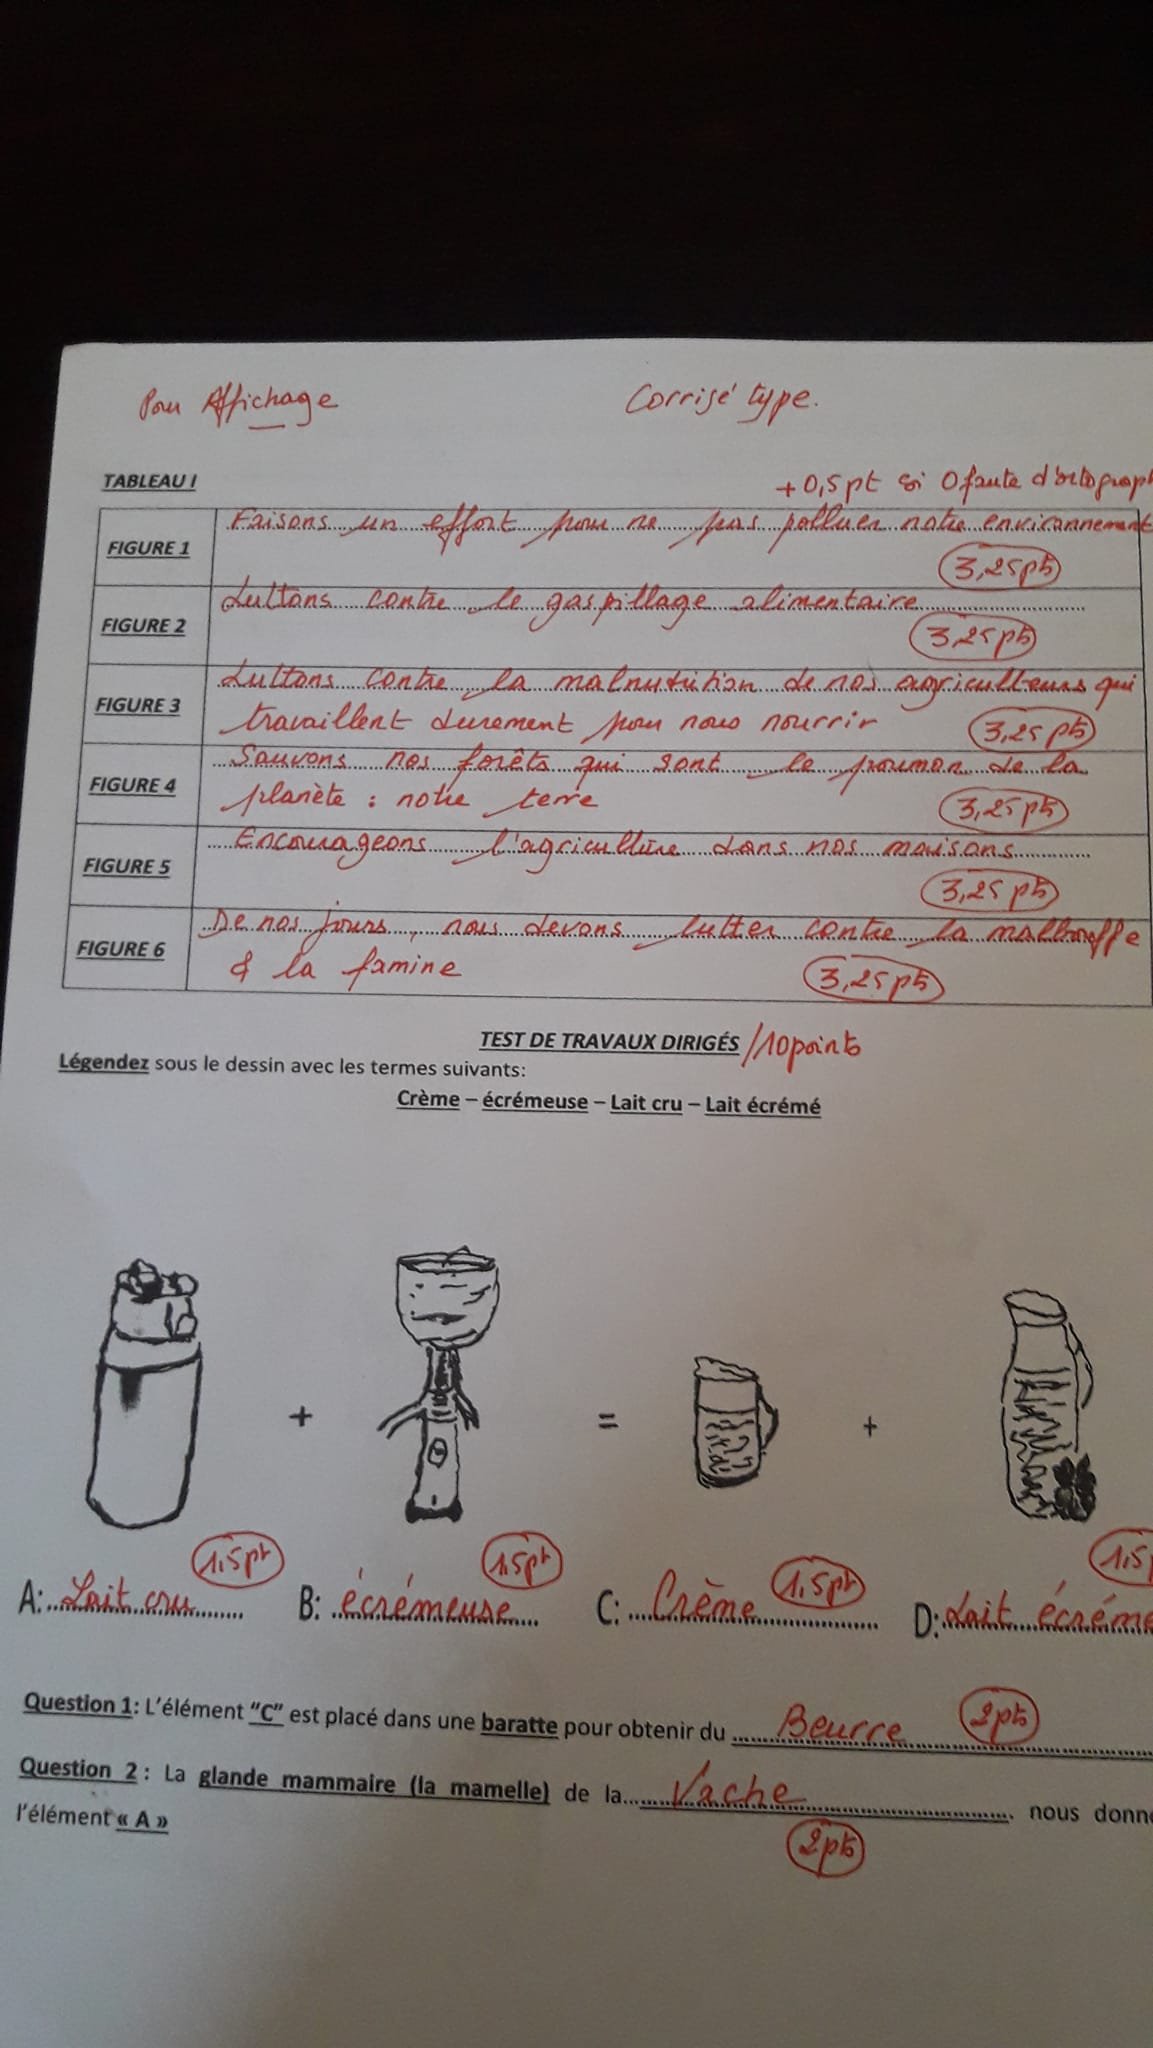 Pour Affichage
Corrigé type.
TABLEAU I
+0,5pt si 0 faute d'ortograph
FIGURE 1
Faisons un effort pour ne pas polluer notre environnement
3,25pts
FIGURE 2
Luttons contre le gaspillage alimentaire
3,25pts
FIGURE 3
Luttons contre la malnutrition de nos agriculteurs qui
travaillent durement pour nous nourrir
3,25pts
FIGURE 4
Sauvons nos forêts qui sont le poumon de la
planète : notre terre
3,25pts
FIGURE 5
Encourageons l'agriculture dans nos maisons
3,25pts
FIGURE 6
De nos jours, nous devons lutter contre la malbouffe
& la famine
3,25pts
TEST DE TRAVAUX DIRIGÉS /10points
Légendez sous le dessin avec les termes suivants:
Crème – écrémeuse – Lait cru – Lait écrémé
+ = +
1,5pt 1,5pt 1,5pt 1,5
A: Lait cru B: écrémeuse C: Crème D: Lait écrémé
Question 1: L'élément "C" est placé dans une baratte pour obtenir du Beurre 2pts
Question 2 : La glande mammaire (la mamelle) de la Vache nous donn
l'élément « A »
2pts